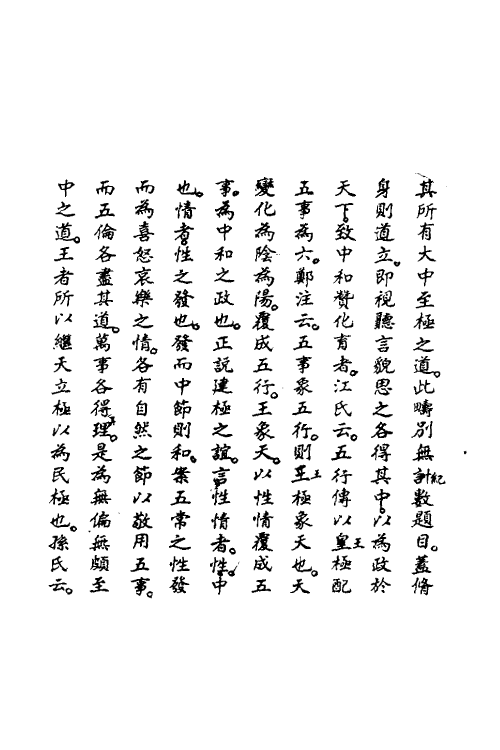 其所有大中至極之道。此疇別無計紀數題目。蓋脩
身則道立。即視聽言貌思之各得其中。以為政於
天下。致中和贊化育者。江氏云。五行傳以皇王極配
五事為六。鄭注云。五事象五行。則王王極象天也。天
變化為陰為陽。覆成五行。王象天。以性情覆成五
事。為中和之政也。正說建極之誼。言性情者。性。中
也。情者。性之發也。發而中節則和。案五常之性發
而為喜怒哀樂之情。各有自然之節以敬用五事。
而五倫各盡其道。萬事各得理。是為無偏無頗至
中之道。王者所以繼天立極以為民極也。孫氏云。